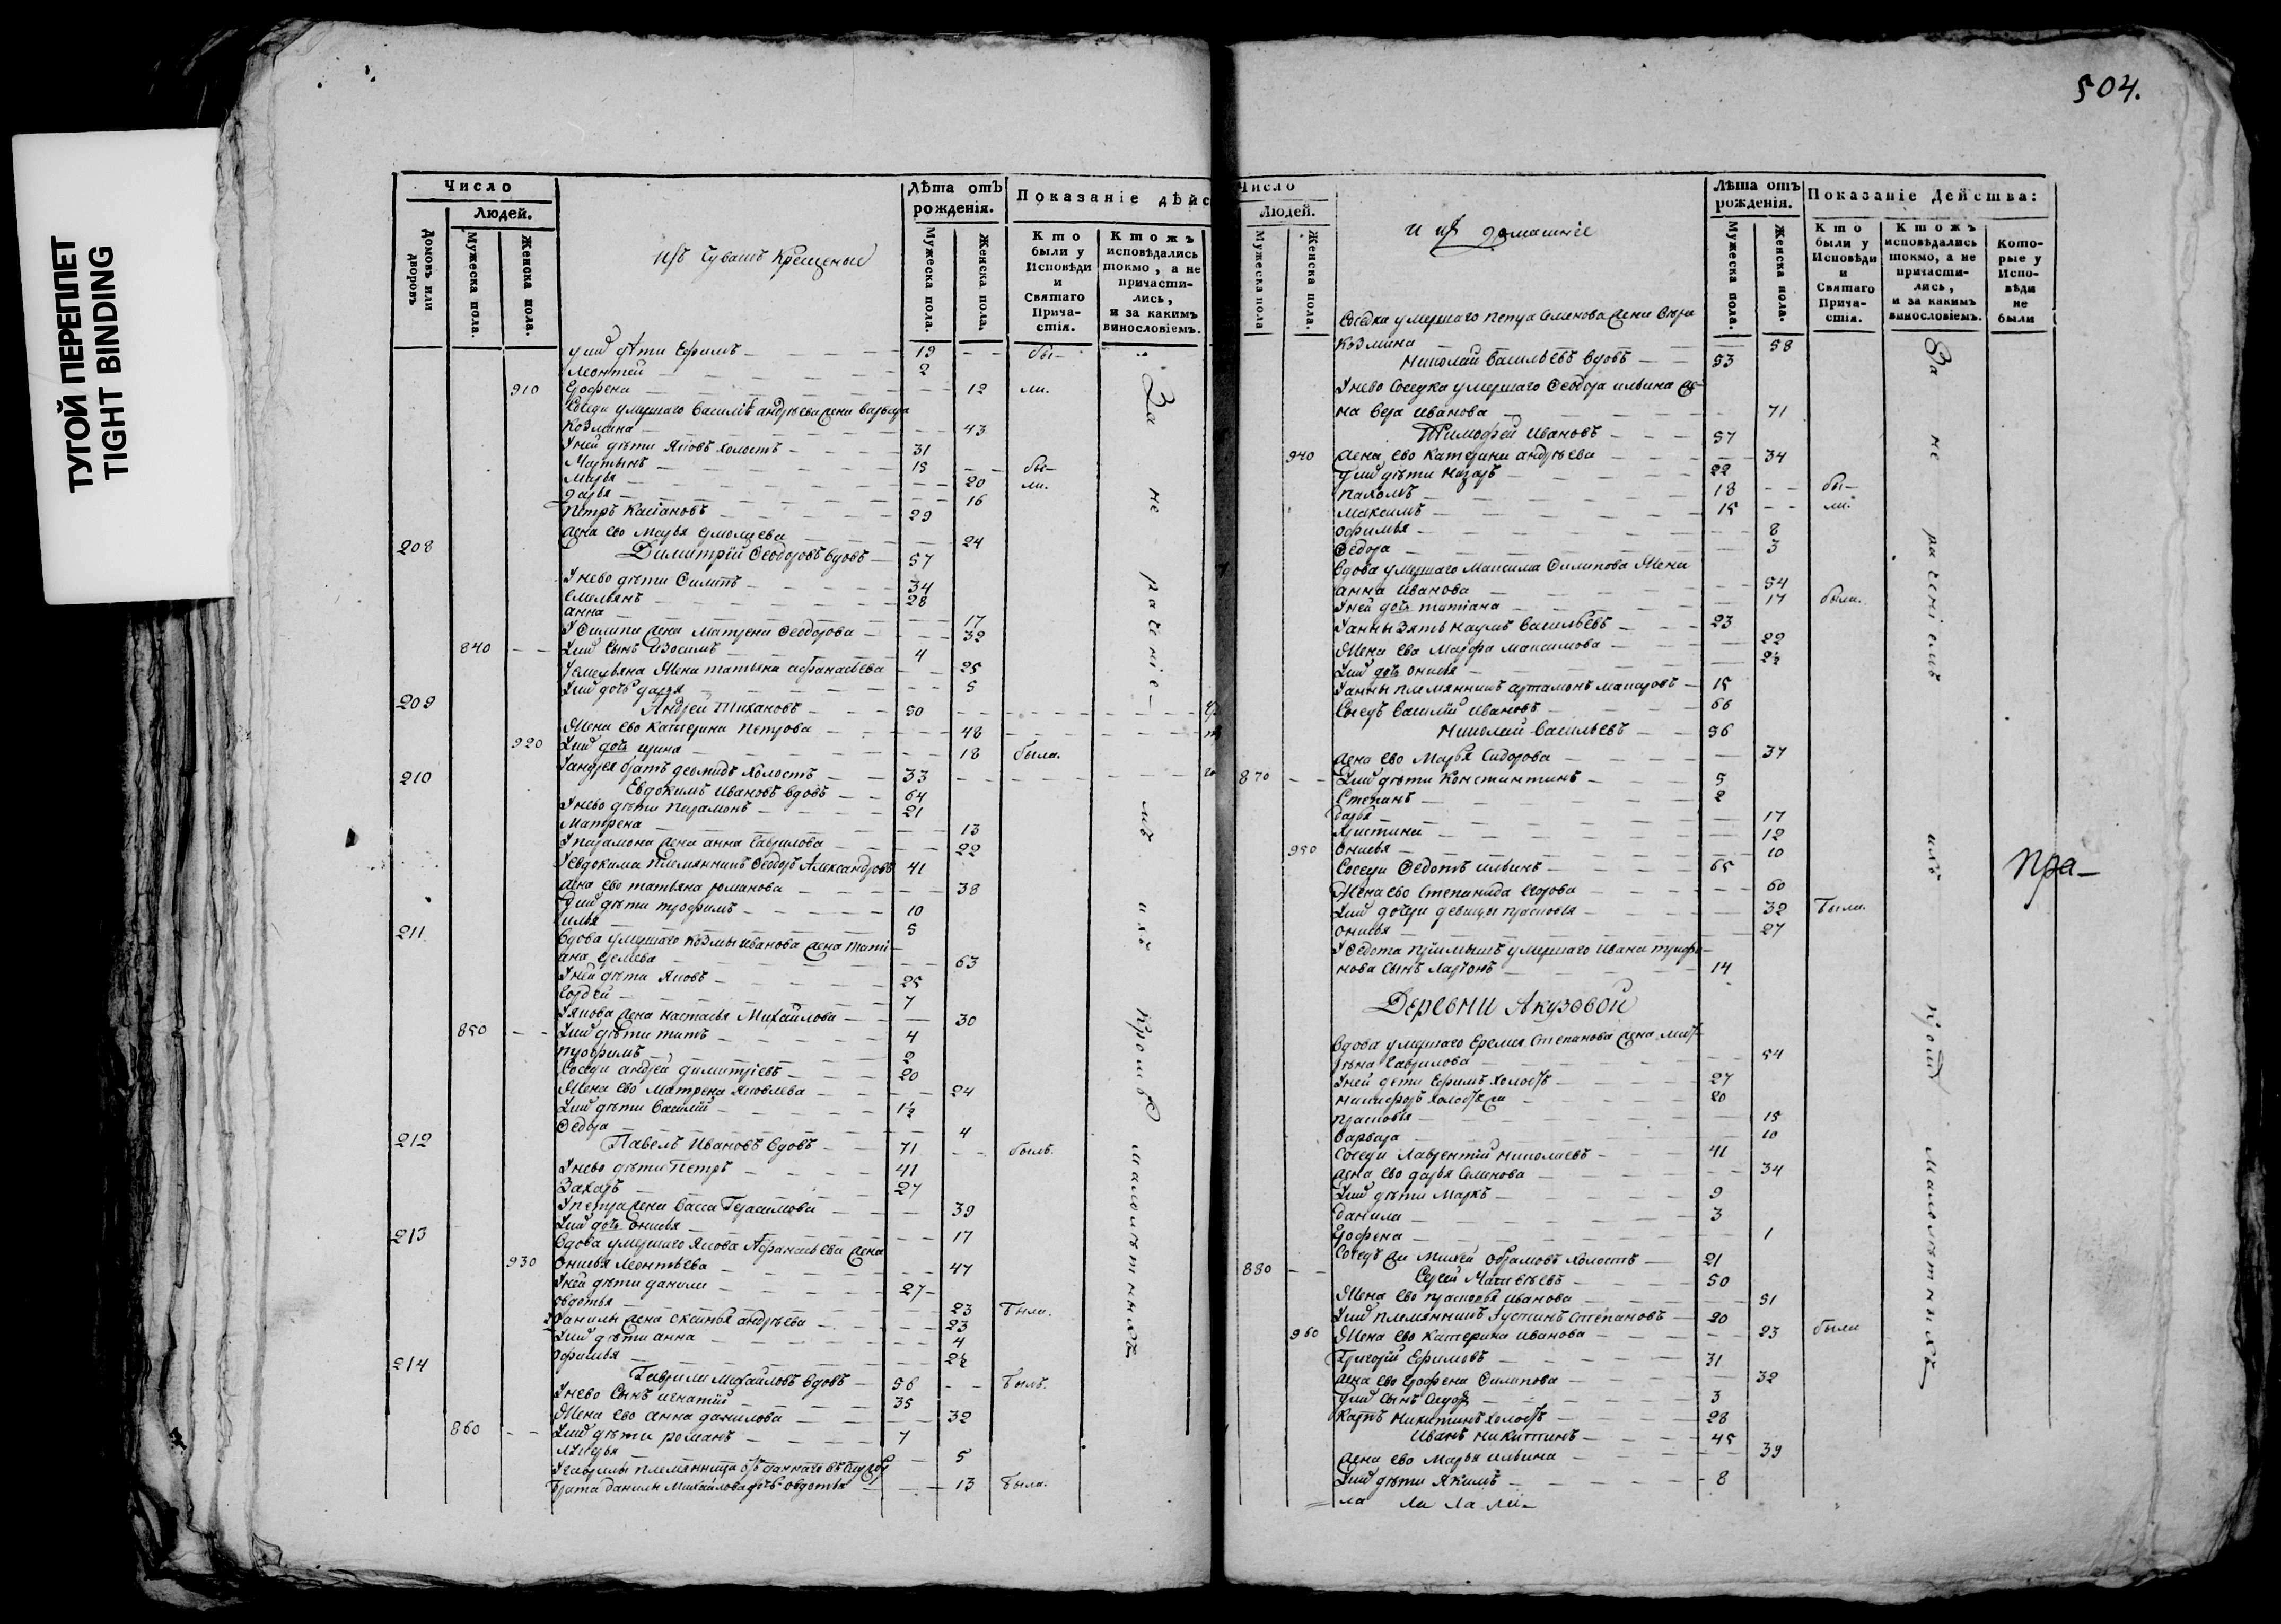 504.
ТУГОЙ ПЕРЕПЛЕТ
TIGHT BINDING
Число
Людей.
Домовъ или дворовъ
Мужеска пола.
Женска пола.
изъ Чувашъ Крещеныя
Лѣта отъ рожденія.
Мужеска пола.
Женска пола.
Показаніе дѣйс
Кто были у Исповѣди и Святаго Прича-стія.
Ктожъ исповѣдались токмо, а не причасти-лись, и за какимъ винословіемъ.
дѣти Ефимъ 19 бы-
Леонтей 2
910 Ерофена 12 ли.
Козмина 43
дѣти Яковъ холостъ 31
Мартынъ 15 бы-
Марья 20 ли.
Дарья 16
Петръ Касіановъ 29
жена ево Марья Ермолаева 24
208 Димитрій Ѳеодоровъ вдовъ 57
У нево дѣти Филипъ 34
Емельянъ 28
анна 17
У Филипа жена Матрена Ѳеодорова 32
840 сынъ Изосимъ 4
У Емельяна Жена татьяна афанасьева 25
дочь дарья 5
209 Андрей Тихановъ 50
Жена ево Катерина Петрова 48
920 дочь ирина 18 была.
У андрея братъ демидъ Холостъ 33
210 Евдокимъ Ивановъ вдовъ 64
У нево дѣти Парамонъ 21
Матрена 13
У парамона жена анна Гаврилова 22
У евдокима племянникъ Ѳеодоръ Александровъ 41
жена ево татьяна романова 38
дѣти трофимъ 10
илья 5
211 Вдова умершаго Козмы иванова жена тати-
ана 63
У ней дѣти Яковъ 25
Гордѣй 7
У якова жена настасья Михайлова 30
850 дѣти титъ 4
трофимъ 2
Соседи андрей димитріевъ 20
Жена ево Матрена Яковлева 24
дѣти Василій 1½
Ѳедора 4
212 Павелъ Ивановъ вдовъ 71 былъ.
У нево дѣти Петръ 41
Захаръ 27
У петра жена Васса Герасимова 39
дочь Онисья 17
213 Вдова умершаго Якова Афанасьева жена
930 Онисья Леонтьева 47
У ней дѣти данила 27
овдотья 23 были.
У данилы жена оксинья андрѣева 23
дѣти анна 4
офимья 2½
214 Гаврила Михайловъ вдовъ 56 былъ.
У нево Сынъ игнатій 35
Жена ево анна данилова 32
860 дѣти романъ 7
5
брата данилы Михайлова дочь овдотья 13 была.
За не раченіе-мъ ихъ кромѣ малолѣтныхъ
Число
Людей.
Мужеска пола
Женска пола.
и ихъ домашніе
Лѣта отъ рожденія.
Мужеска пола.
Женска пола.
Показаніе Действа:
Кто были у Исповѣди и Святаго Прича-стія.
Ктожъ исповѣдались токмо, а не причасти-лись, и за какимъ винословіемъ.
Кото-рые у Испо-вѣди не были
Соседка умершаго Петра Семенова жена
Козмина 58
Николай Васильевъ вдовъ 53
У нево Соседка умершаго Ѳеодора ильина же-
на вера иванова 71
Тимофей Ивановъ 57
940 жена ево Катерина андрѣева 34
дѣти назаръ 22
пахомъ 18 бы-
максимъ 15 ли.
офимья 8
Ѳедора 3
Вдова умершаго Максима Филипова Жена
анна Иванова 54
У ней дочь татіана 17 была.
У анны Зять наумъ Васильевъ 23
Жена ево Марфа максимова 22
дочь онисья 2½
У анны племянникъ артамонъ макаровъ 15
Соседъ Василій Ивановъ 66
Николай Васильевъ 56
жена ево Марья Сидорова 37
870 дѣти Констинтинъ 5
Степанъ 2
дарья 17
Христина 12
950 Онисья 10
Соседи Ѳедотъ ильинъ 65
Жена ево Степанида Егорова 60
дочери девицы прасковья 32 были.
онисья 27
У Ѳедота приимышъ умершаго Ивана трифо-
нова Сынъ Ларіонъ 14
Деревни Акузовой
Вдова умершаго Еремея Степанова жена мат-
рена гаврилова 54
У ней дети Ефимъ холостъ 27
никифоръ холостъ 20
прасковья 15
Варвара 10
Соседи Лаврентій николаевъ 41
жена ево дарья Семенова 34
дѣти Маркъ 9
данила 3
Ерофена 1
Соседъ Михей абрамовъ Холостъ 21
880 Сергей Матвѣевъ 50
Жена ево прасковья иванова 51
племянникъ Устинъ Степановъ 20
960 Жена ево Катерина иванова 23 были
Григорій Ефимовъ 31
жена ево Ерофена Филипова 32
сынъ Сидоръ 3
Карпъ никитинъ холостъ 28
Иванъ никитинъ 45
жена ево Марья ильина 39
дѣти Якимъ 8
За не раченіемъ ихъ кромѣ малолѣтныхъ
Пра-